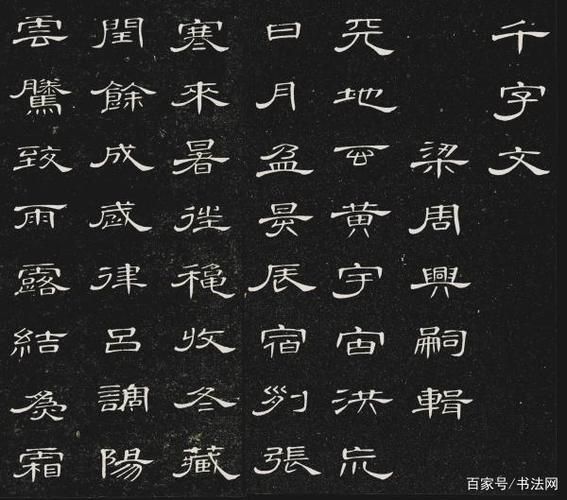 千字文
梁周興嗣輯
天地玄黃宇宙洪荒
日月盈昃辰宿列張
寒來暑往穐收冬藏
閏餘成歲律呂調陽
雲騰致雨露結為霜
百家号/书法网